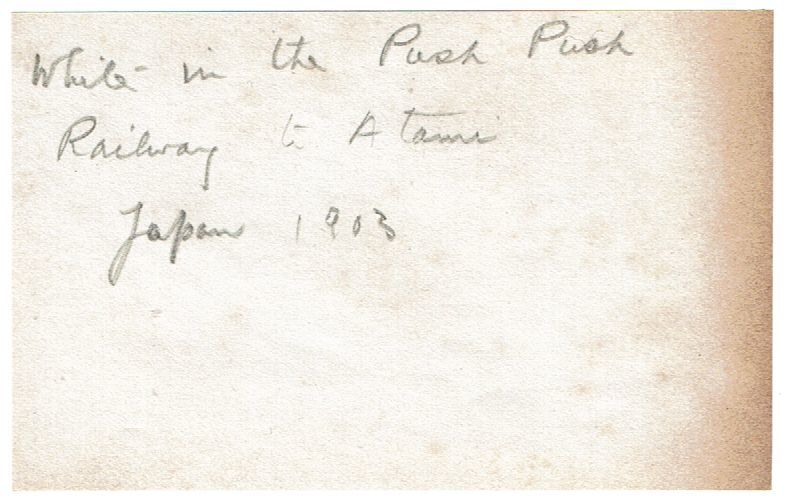 White in the Push Push
Railway to Atami
Japan 1903